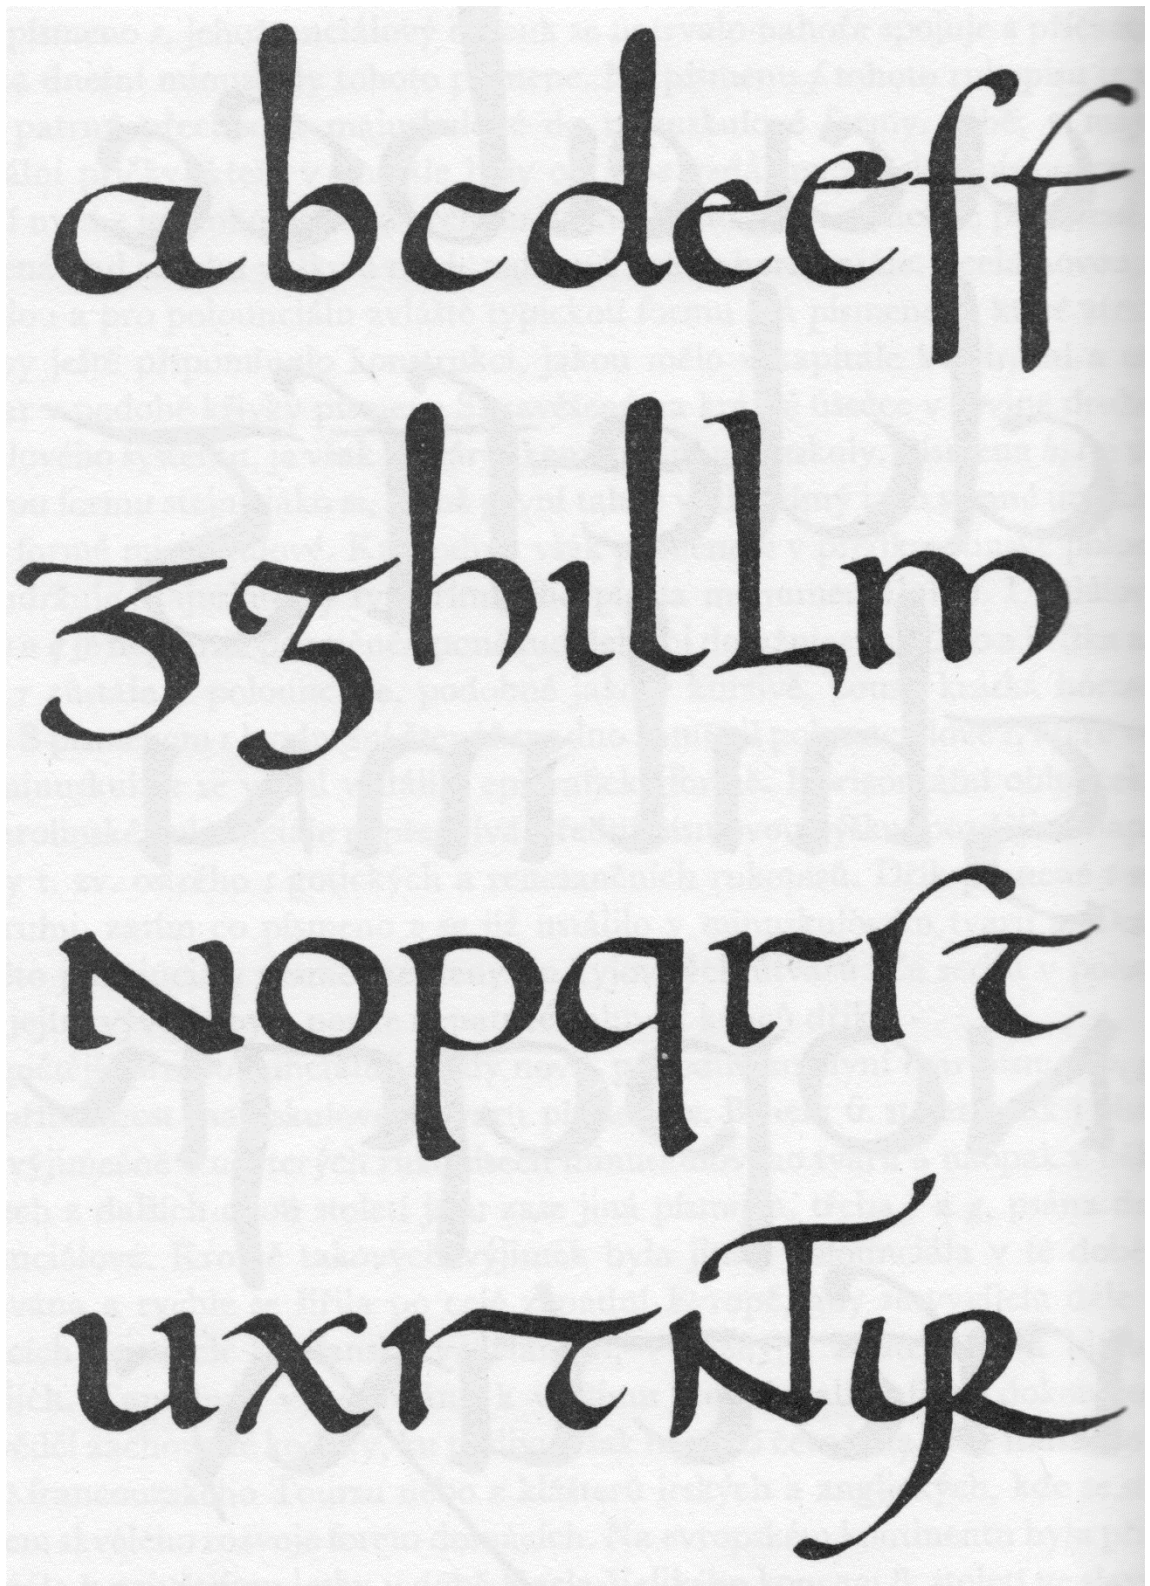 abcdeeff
gghillm
nopqrſt
uxrtNTuR